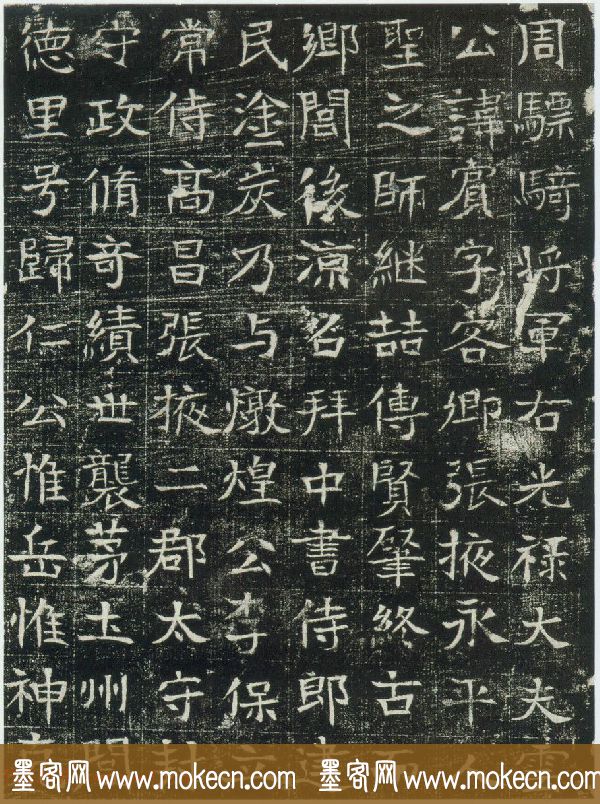 周驃騎將軍右光祿大夫雲
公諱賓字客卿張掖永平人
聖之師継喆傳賢肇終古而
鄉閭後涼召拜中書侍郎
民塗炭乃与燉煌公李保立
常侍高昌張掖二郡太守封
守政脩奇績世襲茅土州閭
德里号歸仁公惟岳惟神
墨客网 www.mokecn.com 墨客网 www.mokecn.com